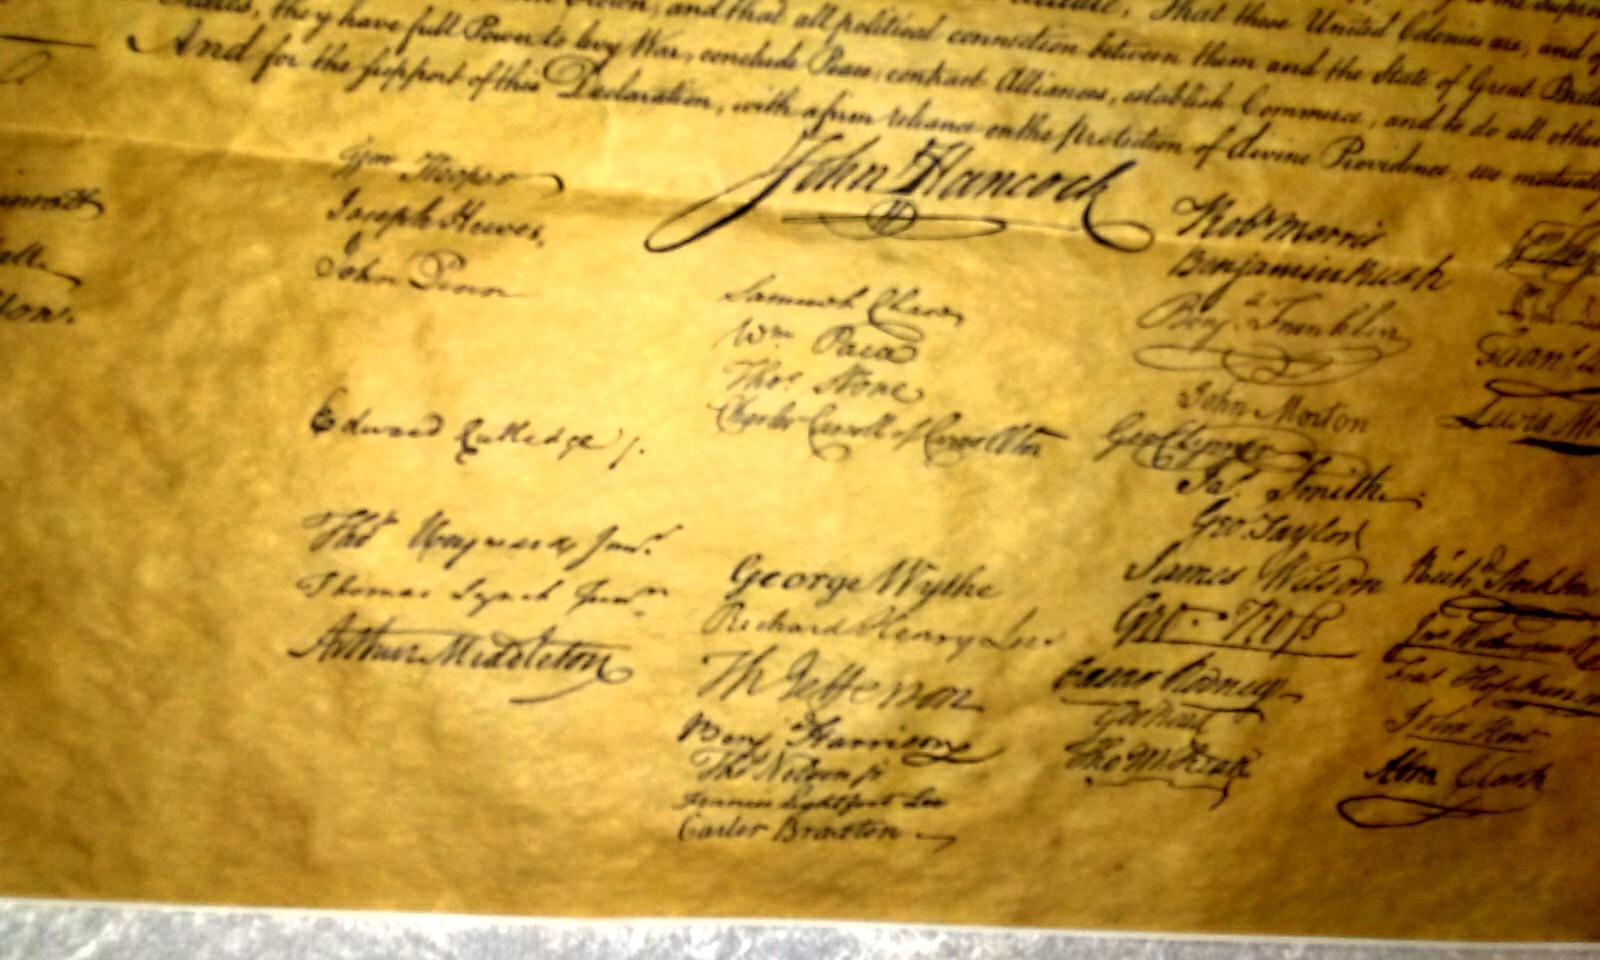 and that all political connection between them and the State of Great
States, they have full Power to levy War, conclude Peace, contract Alliances, establish Commerce, and to do all other
And for the support of this Declaration, with a firm reliance on the protection of divine Providence, we mutually
Wm Hooper
Joseph Hewes,
John Penn
Edward Rutledge /.
Thos Heyward Junr.
Thomas Lynch Junr.
Arthur Middleton
John Hancock
Samuel Chase
Wm Paca
Thos Stone
Charles Carroll of Carrollton
George Wythe
Richard Henry Lee
Th Jefferson
Benj Harrison
Thos Nelson jr
Francis Lightfoot Lee
Carter Braxton
Robt Morris
Benjamin Rush
Benja. Franklin
John Morton
Geo Clymer
Jas. Smith
Geo. Taylor
James Wilson
Geo. Ross
Caesar Rodney
Geo Read
Tho M:Kean
Lewis
Richd Stockton
Jno Witherspoon
Fras Hopkinson
John Hart
Abra Clark